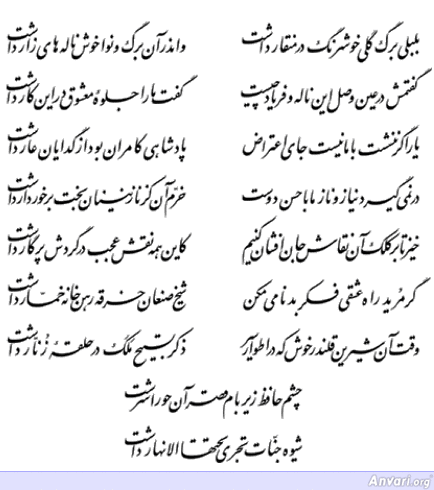 بلبلی برگ گلی خوشرنگ در منقار داشت واندر آن برگ و نوا خوش ناله های زار داشت
گفتمش در عین وصل این ناله و فریاد چیست گفت ما را جلوهٔ معشوق در این کار داشت
یار اگر ننشست با ما نیست جای اعتراض پادشاهی کامران بود از گدایان عار داشت
در نمی‌گیرد نیاز و ناز ما با حسن دوست خرّم آن کز نازنینان بخت برخوردار داشت
خیز تا بر کلک آن نقاش جان افشان کنیم کاین همه نقش عجب در گردش پرگار داشت
گر مُرید راه عشقی فکر بدنامی مکن شیخ صنعان خرقه رهن خانه خمّار داشت
وقت آن شیرین قلندر خوش که در اطوار ذکر تسبیح ملک در حلقهٔ زُنّار داشت
چشم حافظ زیر بام قصر آن حوراسرشت
شیوه جنّات تجری تحتها الانهار داشت
Anvari.org